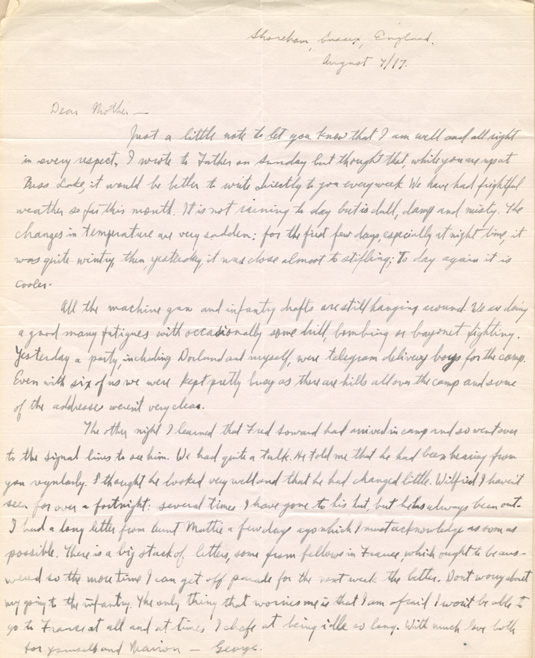 Shoreham, Sussex, England.
August 7/17.
Dear Mother —
Just a little note to let you know that I am well and all right
in every respect. I wrote to Father on Sunday but thought that, while you are up at
Bass Lake, it would be better to write directly to you every week. We have had frightful
weather so far this month. It is not raining to day but is dull, damp and misty. The
changes in temperature are very sudden: for the first few days, especially at night time, it
was quite wintry, then yesterday it was close almost to stifling; To day again it is
cooler.
All the machine gun and infantry drafts are still hanging around. We are doing
a good many fatigues with occasionally some drill, bombing or bayonet fighting.
Yesterday a party, including Dorland and myself, were telegram delivery boys for the camp.
Even with six of us we were kept pretty busy as there are hills all over the camp and some
of the addresses weren't very clear.
The other night I learned that Fred Soward had arrived in camp and so went over
to the signal lines to see him. We had quite a talk. He told me that he had been hearing from
you regularly. I thought he looked very well and that he had changed little. Wilfrid I haven't
seen for over a fortnight: several times I have gone to his hut but he has always been out.
I had a long letter from Aunt Mattie a few days ago which I must acknowledge as soon as
possible. There is a big stack of letters, some from fellows in France, which ought to be ans-
wered so the more time I can get off parade for the next week the better. Dont worry about
my going to the infantry. The only thing that worries me is that I am afraid I won't be able to
go to France at all and at times I chafe at being idle so long. With much love both
for yourself and Marion — George.